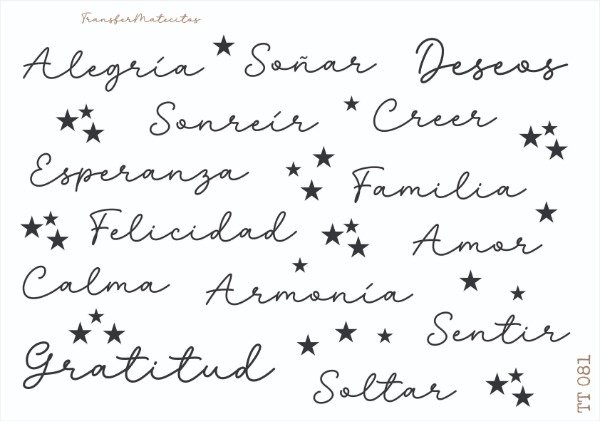 TransferMatecitos
Alegría Soñar Deseos
Sonreír Creer
Esperanza Familia
Felicidad Amor
Calma Armonía
Sentir
Gratitud
Soltar
TT 081